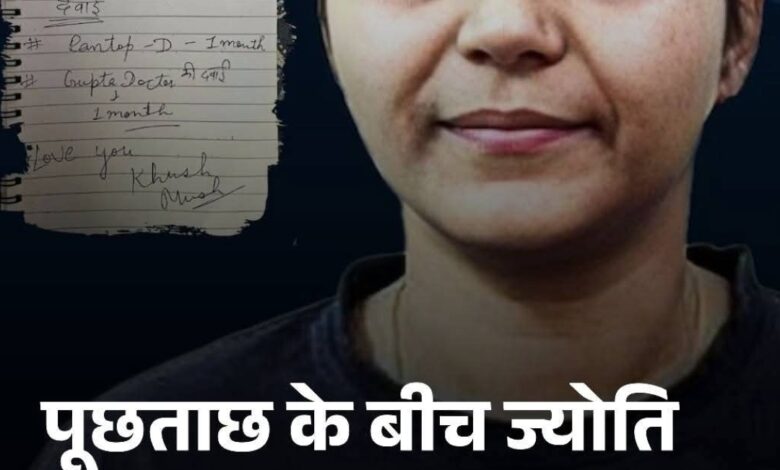 दवाई
# Pantop-D - 1 month
# Gupta Doctor की दवाई
1 month
Love you
Khush Mush
पूछताछ के बीच ज्योति